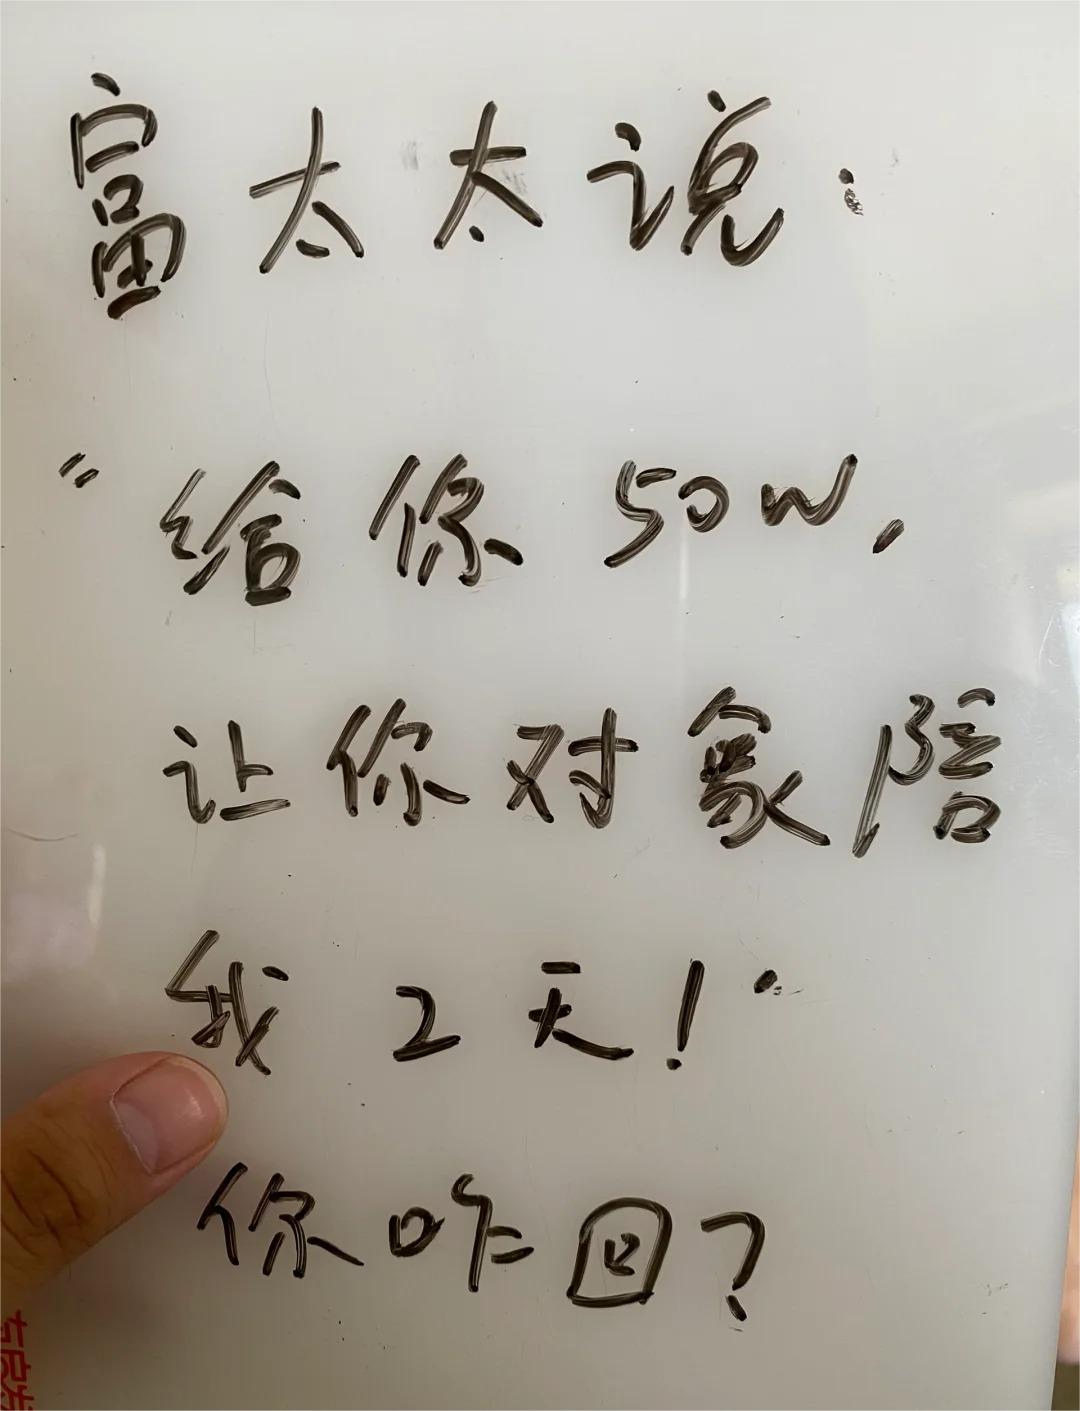 富太太说:
“给你50W,
让你对象陪
我2天!”
你咋回?